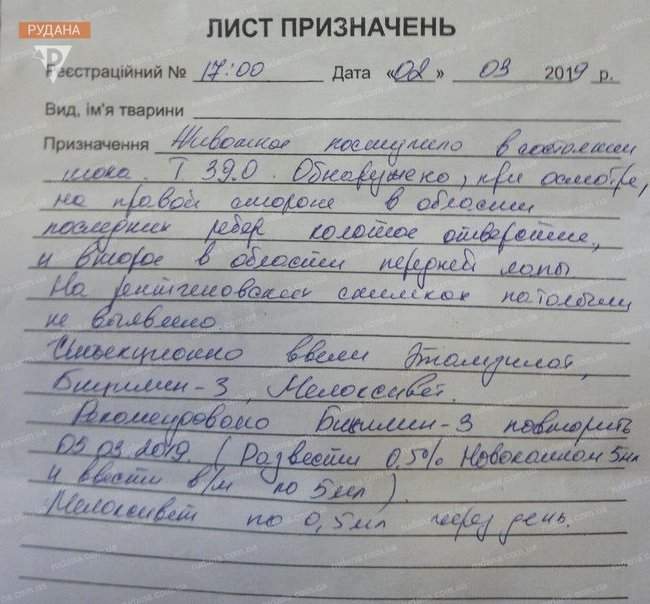 РУДАНА
ЛИСТ ПРИЗНАЧЕНЬ
Реєстраційний № 17:00 Дата «02» 03 2019 р.
Вид, ім'я тварини
Призначення Животное поступило в состоянии
шока. Т 39.0. Обнаружено, при осмотре,
на правой стороне в области
последних ребер колотое отверстие,
и второе в области передней лапы
На рентгеновских снимках патологии
не выявлено.
Инъекционно ввели Этамзилат,
Бициллин-3, Мелоксивет.
Рекомендовано Бициллин-3 повторить
05.03.2019. (Развести 0,5% Новокаином 5мл
и ввести в/м по 5мл).
Мелоксивет по 0,5мл через день.